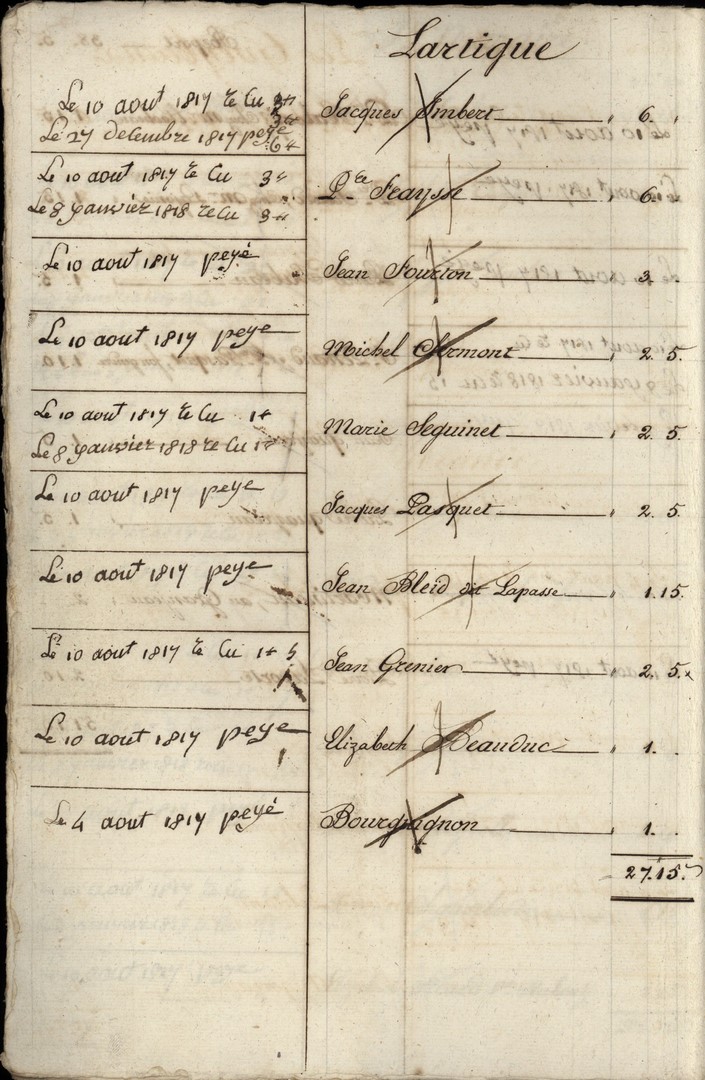 Lartigue
Le 10 aout 1817 Reçu 3#
Le 27 decembre 1817 peyé
6#
Jacques Imbert " 6.
Le 10 aout 1817 Reçu 3#
Le 8 Janvier 1818 reçu 3#
P.re Fraysse " 6.
Le 10 aout 1817 peyé
Jean Fourton " 3.
Le 10 aout 1817 peye
Michel Clermont " 2. 5.
Le 10 aout 1817 Reçu 1#
Le 8 Janvier 1818 reçu 1#
Marie Seguinet " 2. 5.
Le 10 aout 1817 peye
Jacques Pasquet " 2. 5.
Le 10 aout 1817 peye
Jean Bleid dit Lapasse " 1. 15.
Le 10 aout 1817 Reçu 1# 5
Jean Grenier " 2. 5.
Le 10 aout 1817 peye
Elizabeth Beauduc " 1.
Le 4 aout 1817 peyé
Bourguignon " 1.
27. 15.